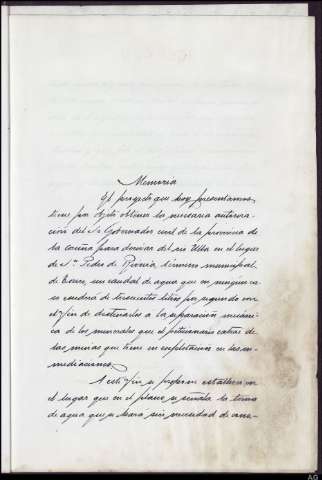 Memoria
El proyecto que hoy presentamos,
tiene por objeto obtener la necesaria autoriza-
ción del Sr. Gobernador civil de la provincia de
la Coruña para derivar del río Ulla en el lugar
de Sn. Pedro de término municipal
de un caudal de agua que en ningun ca-
so excederá de trescientos litros por segundo con
el fin de destinarlos a la separación mecáni-
ca de los minerales que el peticionario extrae de
las minas que tiene en explotación en las in-
mediaciones.
A este fin se proponen establecer en
el lugar que en el plano se señala la toma
de agua que se hará sin necesidad de
AG